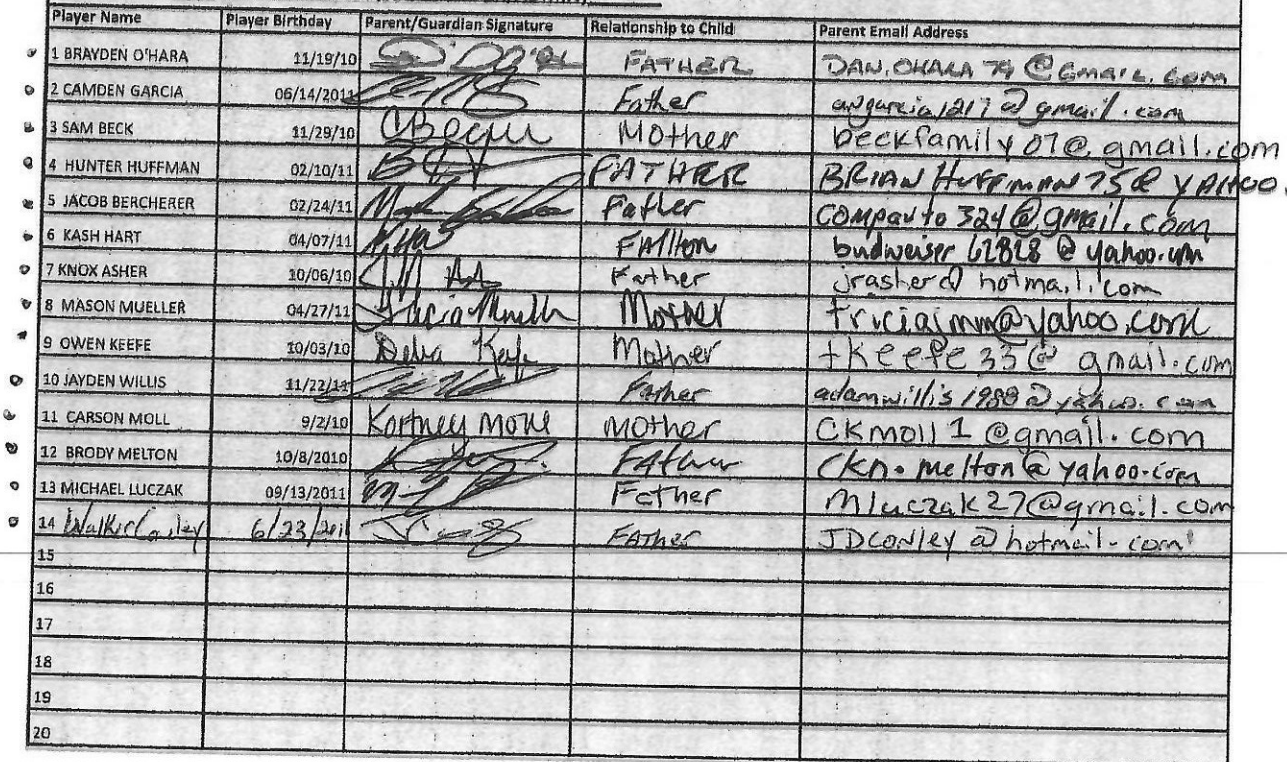 Player Name Player Birthday Parent/Guardian Signature Relationship to Child Parent Email Address
1 BRAYDEN O'HARA 11/19/10 FATHER DAN.OHARA 79 @Gmail.com
2 CAMDEN GARCIA 06/14/2011 Father avgarcia1217@gmail.com
3 SAM BECK 11/29/10 Mother beckfamily07@gmail.com
4 HUNTER HUFFMAN 02/10/11 FATHER BRIAN HUFFMAN 75@ YAHOO.
5 JACOB BERCHERER 02/24/11 Father compauto 324@gmail.com
6 KASH HART 04/07/11 budweiser 62828 @ yahoo.com
7 KNOX ASHER 10/06/10 Father jrasher@hotmail.com
8 MASON MUELLER 04/27/11 Tricia Muell Mother triciajmm@yahoo.com
9 OWEN KEEFE 10/03/10 Keefe Mother tkeefe33@gmail.com
10 JAYDEN WILLIS 11/22/11 Father adamwillis1988@yahoo.com
11 CARSON MOLL 9/2/10 Kortney Moll Mother CKmoll1@gmail.com
12 BRODY MELTON 10/8/2010 Father ckn.melton@yahoo.com
13 MICHAEL LUCZAK 09/13/2011 Father Mluczak27@gmail.com
14 Walker Conley 6/23/2011 Father JDCONley@hotmail.com
15
16
17
18
19
20